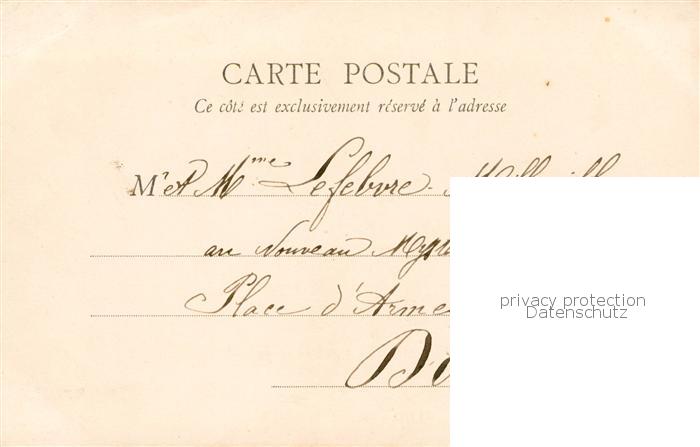 CARTE POSTALE
Ce côté est exclusivement réservé à l'adresse
Mr et Mme Lefebvre
au Nouveau
Place d'Arme
privacy protection
Datenschutz